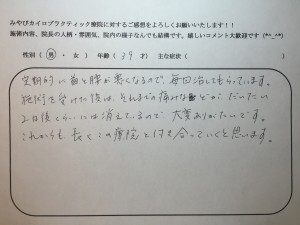 みやびカイロプラクティック療院に対するご感想をよろしくお願いいたします！！
施術内容、院長の人柄・雰囲気、院内の様子なんでも結構です。嬉しいコメント大歓迎です（*^_^*）
性別（ 男 ・ 女 ）　年齢（ 39 才 ）　主な症状（　　　）
定期的に首も腰が悪くなるので、毎回治してもらっています。
施術を受けた後は、それまでの痛みなどが、だいたい
2日後くらいには消えているので、大変ありがたいです。
これからも、長くこの療院とは付き合っていくと思います。